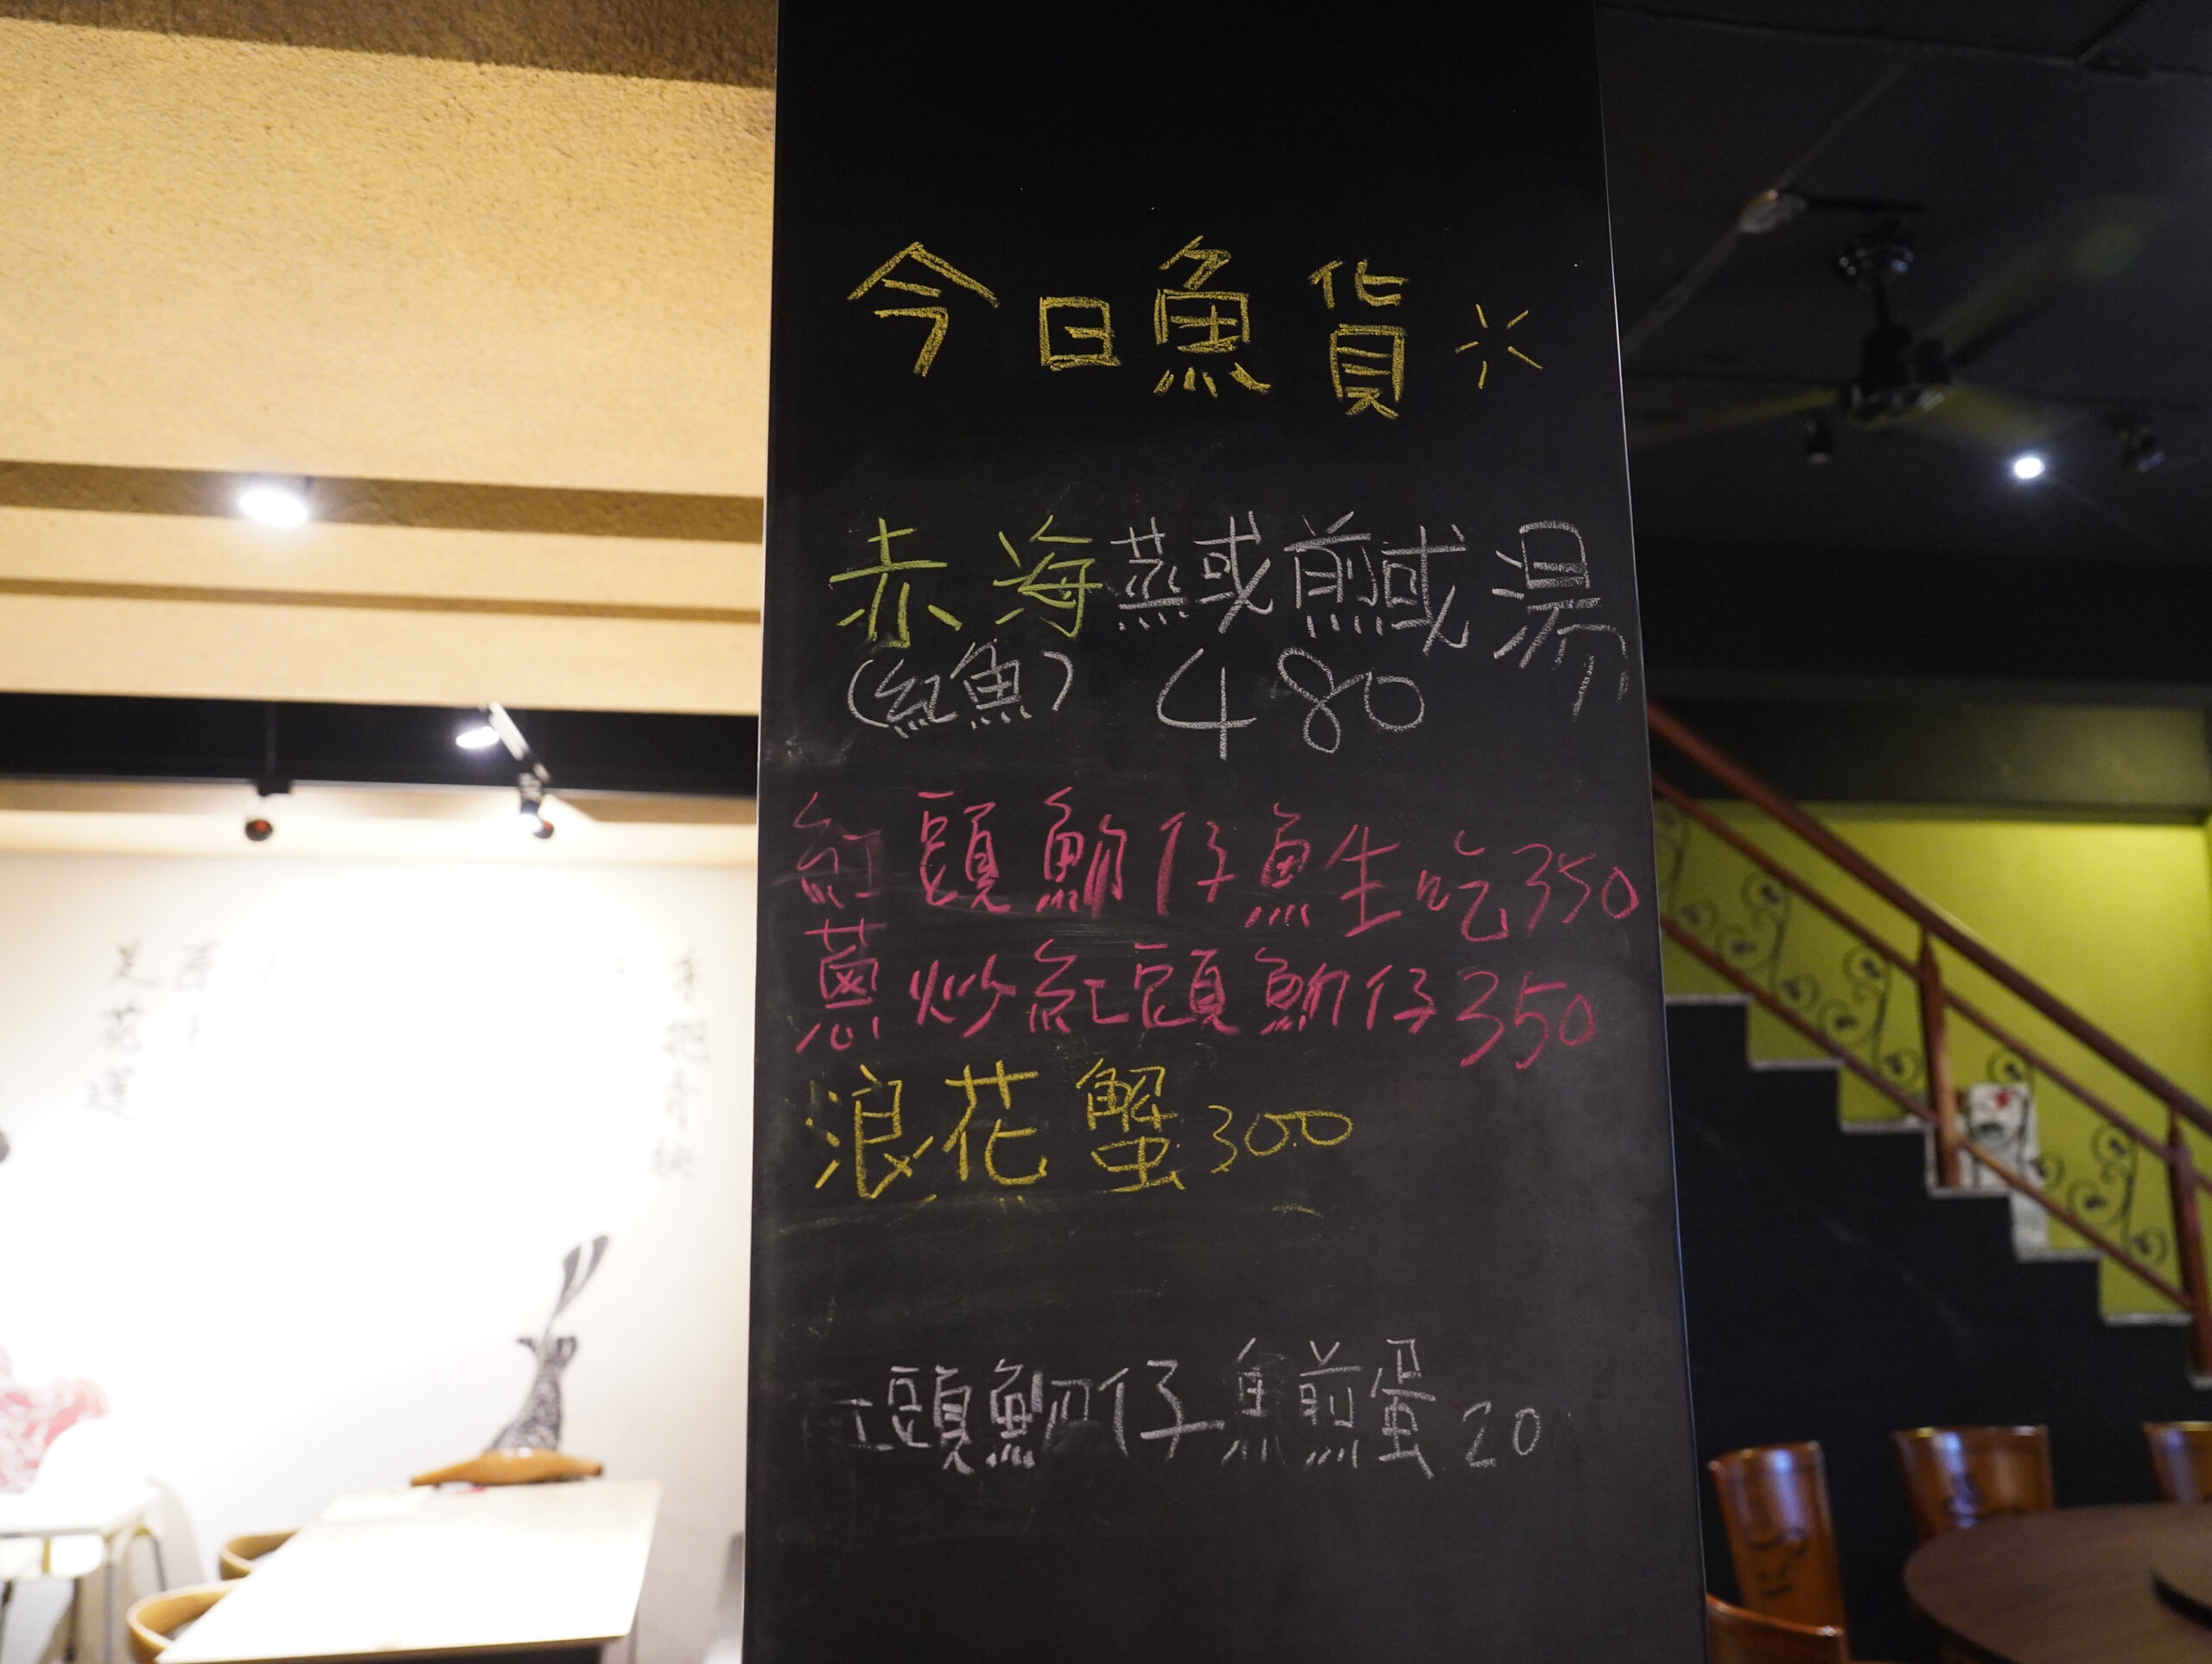 今日魚貨
赤海蒸或煎或湯
(紅魚) 480
紅頭魩仔魚生吃350
蔥炒紅頭魩仔350
浪花蟹300
紅頭魩仔魚煎蛋20